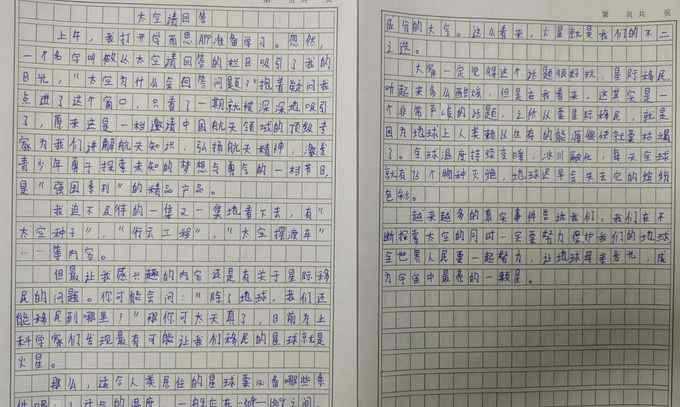 太空请回答
上午，我打开学而思APP准备学习。忽然，
一个名字叫做太空请回答的栏目吸引了我的
目光，"太空为什么会回答问题？"抱着疑问我
点进了这个窗口，只看了一期就被深深地吸引
了，原来这是一档邀请中国航天领域的顶级专
家为我们讲解航天知识，弘扬航天精神，激发
青少年勇于探索未知的梦想与勇气的一档节目，
是"强国系列"的精品产品。
我迫不及待的一集又一集地看下去，有"
太空种子"，"衍云工程"，"太空摆渡车"
……等内容。
但最让我感兴趣的内容还是有关于星际移
民的问题。你可能会问："除了地球，我们还
能移民到哪里？"那你可太天真了，目前为止
科学家们发现最有可能让我们移民的星球就是
火星。
那么，适合人类居住的星球要必备哪些条
件呢：1.适合的温度，一般在在
第 页 共 页
太空。这么看来，火星就是我们的不二
之选。
大家一定觉得这个话题很好玩，星际移民
听起来多么酷炫，但是在我看来，这其实是一
个非常严峻的话题。之所以要星际移民，就是
因为地球上人类赖以生存的能源很快就要
了。全球温度持续变暖，冰川融化，每天全球
就有75个物种灭绝，地球迟早会失去它的缤纷
色彩。
越来越多的真实事件告诉我们，我们在不
断探索太空的同时一定要努力保护我们的地球
全世界人民要一起努力，让地球母亲，成
为宇宙中最亮的一颗星。
第 页 共 页